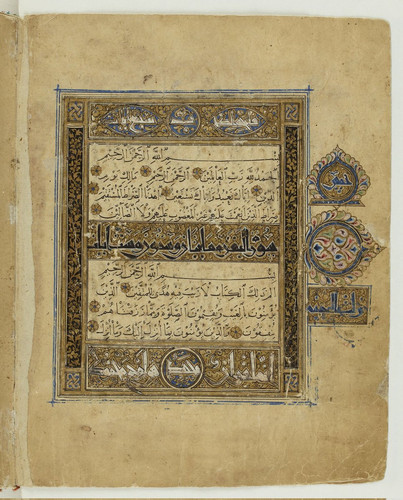 بسم الله الرحمن الرحيم
الحمد لله رب العالمين الرحمن الرحيم مالك يوم
الدين اياك نعبد واياك نستعين اهدنا الصراط المستقيم
صراط الذين انعمت عليهم غير المغضوب عليهم ولا الضالين
البقرة مايتان وثمانون وست ايات
بسم الله الرحمن الرحيم
الم ذلك الكتاب لا ريب فيه هدى للمتقين الذين
يؤمنون بالغيب ويقيمون الصلوة ومما رزقناهم
ينفقون والذين يؤمنون بما انزل اليك وما انزل